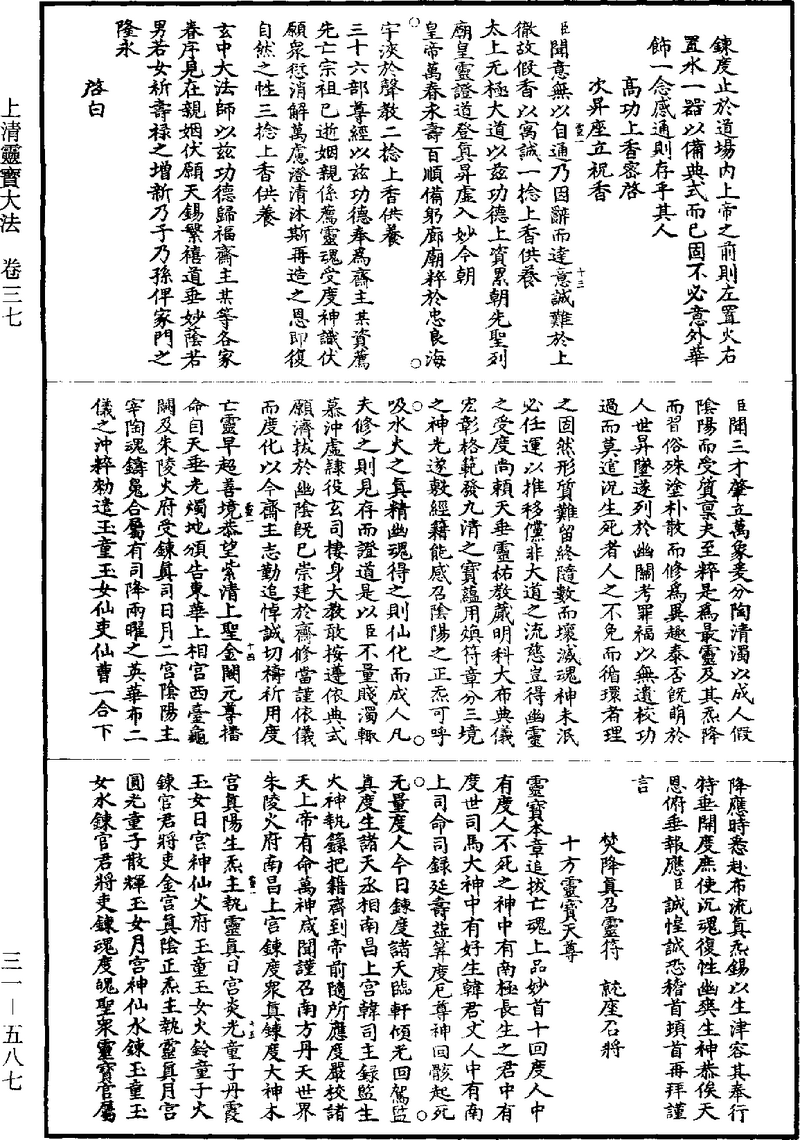 鍊度止於道場內上帝之前則左置火右
置水一器以備典式而已固不必意外華
飾一念感通則存乎其人
高功上香密啓
次昇座立祝香
臣聞意無以自通乃因辭而達意誠難於上
徹故假香以寓誠一捻上香供養
太上无極大道以茲功德上資累朝先聖列
廟皇靈證道登真昇虛入妙今朝
皇帝萬春永壽百順備躬廊廟粹於忠良海
宇浹於聲教二捻上香供養
三十六部尊經以茲功德奉為齋主某資薦
先亡宗祖已逝姻親係薦靈魂受度神識伏
願眾愆消解萬慮澄清沐斯再造之恩即復
自然之性三捻上香供養
玄中大法師以茲功德歸福齋主某等各家
眷序見在親姻伏願天錫繁禧道垂妙蔭若
男若女祈壽祿之增新乃子乃孫俾家門之
隆永
啓白
臣聞三才肇立萬象爰分陶清濁以成人假
陰陽而受質稟夫至粹是為最靈及其炁降
而習俗殊塗朴散而修為異趣泰否既萌於
人世昇墜遂列於幽關考罪福以無遺校功
過而莫逭況生死者人之不免而循環者理
之固然形質難留終隨數而壞滅魂神未泯
必任運以推移儻非大道之流慈豈得幽靈
之受度尚賴天垂靈祐教蕆明科大布典儀
宏彰格範發九清之寶蘊用煥符章分三境
之神光遂敷經籍能感召陰陽之正炁可呼
吸水火之真精幽魂得之則仙化而成人凡
夫修之則見存而證道是以臣不量賤濁輒
慕沖虛隸役玄司棲身大教敢按遵依典式
願濟拔於幽陰既已崇建於齋修當謹依儀
而度化以今齋主志勤追悼誠切禱祈用度
亡靈早超善境恭望紫清上聖金闕元尊播
命自天垂光燭地頒告東華上相宮西臺龜
闕及朱陵火府受鍊真司日月二宮陰陽主
宰陶魂鑄魄合屬有司降兩曜之英華布二
儀之沖粹勑遣玉童玉女仙吏仙曹一合下
降應時悉赴布流真炁錫以生津容其奉行
特垂開度庶使沉魂復性幽爽生神恭俟天
恩俯垂報應臣誠惶誠恐稽首頓首再拜謹
言
焚降真召靈符　就座召將
十方靈寶天尊
靈寶本章追拔亡魂上品妙首十回度人中
有度人不死之神中有南極長生之君中有
度世司馬大神中有好生韓君丈人中有南
上司命司錄延壽益筭度厄尊神回骸起死
无量度人今日鍊度諸天臨軒傾光回駕監
真度生諸天丞相南昌上宮韓司主錄監生
大神執籙把籍齊到帝前隨所應度嚴校諸
天上帝有命萬神咸聞謹召南方丹天世界
朱陵火府南昌上宮鍊度眾真鍊度大神木
宮真陽生炁主執靈真日宮炎光童子丹霞
玉女日宮神仙火府玉童玉女火鈴童子火
鍊官君將吏金宮真陰正炁主執靈真月宮
圓光童子散輝玉女月宮神仙水鍊玉童玉
女水鍊官君將吏鍊魂度魄聖眾靈寶官屬
上清靈寶大法　卷三七
三一—五八七